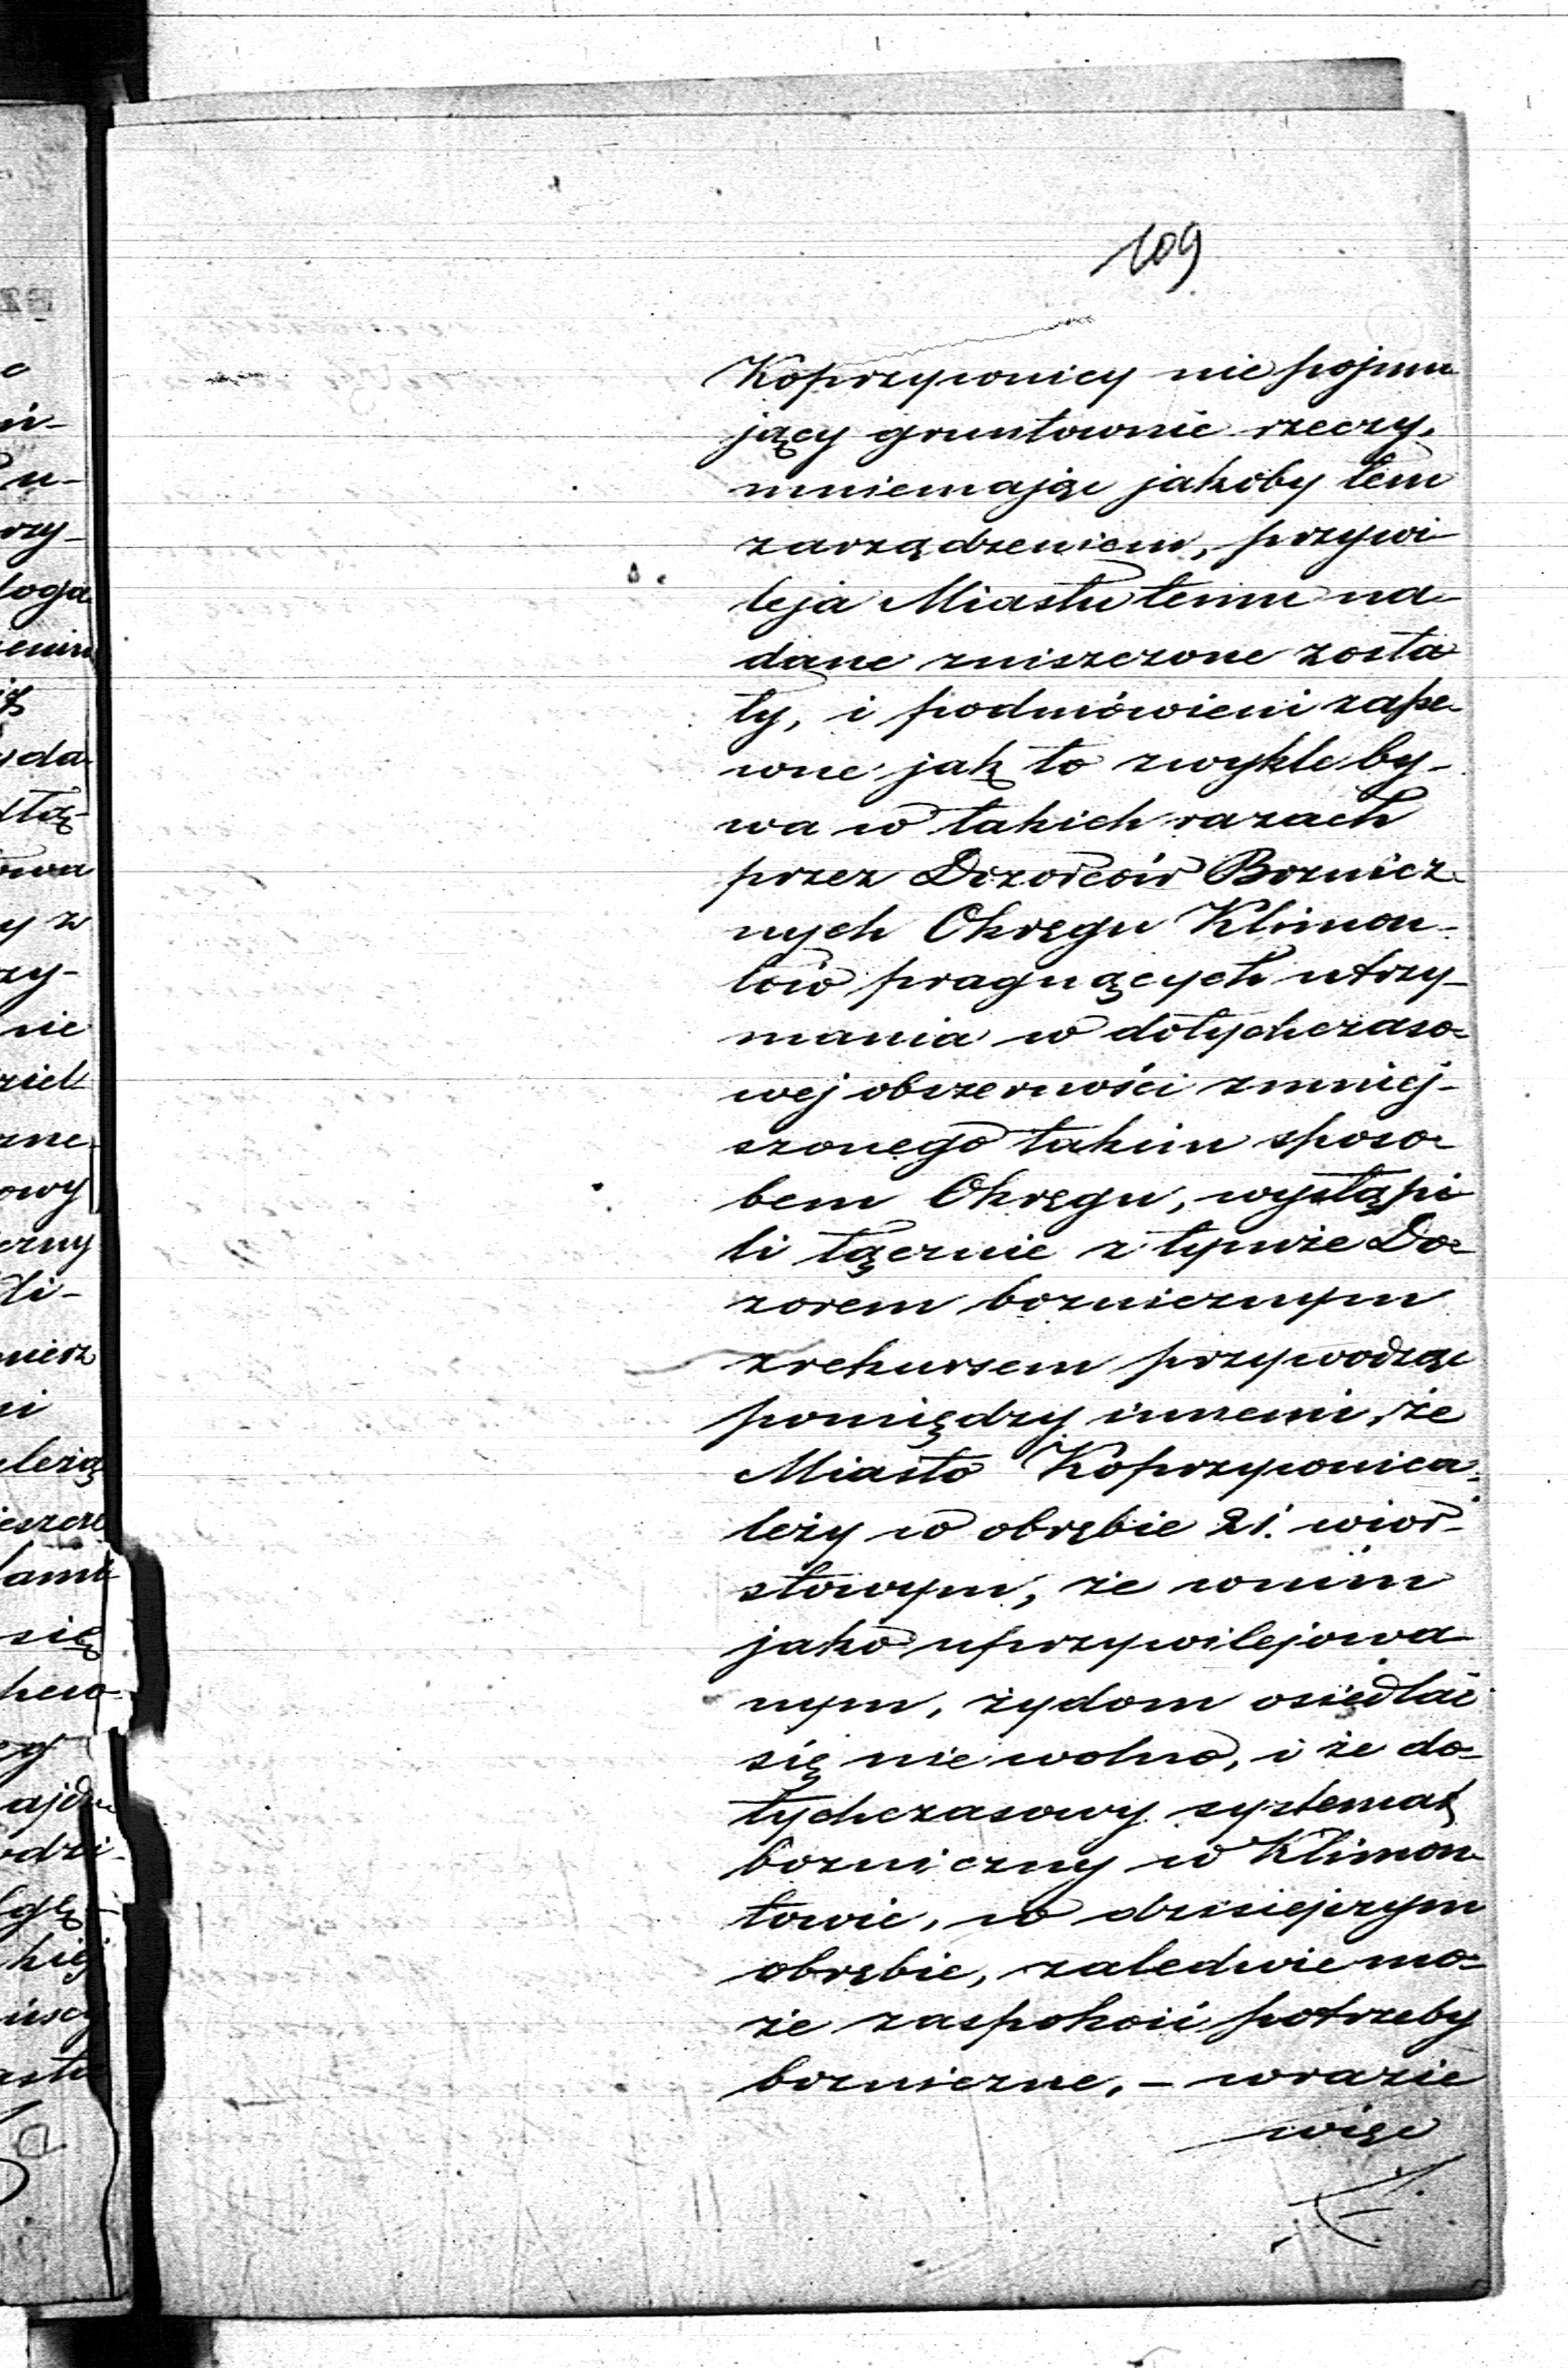 109
Koprzywnicy nie pojmu
jący gruntownie rzeczy,
mniemając jakoby tém
zarządzeniem, przywi
leja Miastu temu na-
dane zniszczone zosta
ły, i podmówieni zape-
wne jak to zwykle by-
wa w takich razach
przez Dozorców Boznicz-
nych Okręgu Klimon-
tów pragnących utrzy-
mania w dotychczaso-
wej obszerności zmniej-
szonego takim sposo-
bem Okręgu, wystąpi
li łącznie z tymże Do-
zorem bozniczným
z rekursem przywodząc
pomiędzy innemi, że
Miasto Koprzywnica
leży w obrębie 21. wior-
stowym, że w nim
jako uprzywilejowa
nym, żydom osiedlać
się nie wolno, i że do-
tychczasowy systemat
bozniczny w Klimon-
towie, w dzisiejszym
obrębie, zaledwie mo-
że zaspokoić potrzeby
boznicze, – w razie
więc